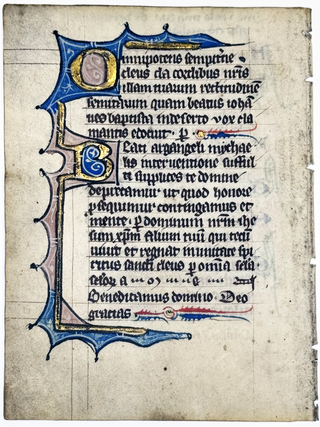 Omnipotens sempit̄ne
deus da cordibus nr̄is
illam tuarum rectitudinē
semitarum quam beatus ioha
nes baptista in deserto vox cla
mantis edocuit. ꝑ
Beati archangeli michae
lis interventione sufful
ti supplices te domine
deprecamur ut quod honore
ꝓsequimur contingamus et
mente. ꝑ dominum nr̄m ihe
sum xp̄m filium tuū qui tecū
uiuit et regnat in unitate spi
ritus sancti deus ꝑ omnia scła
Benedicamus domino. Deo
gracias